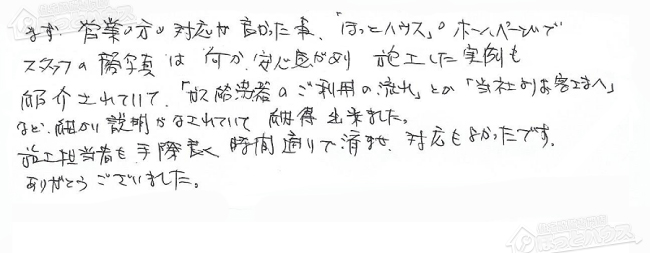 まず、営業の方の対応が良かった事、「ほっとハウス」のホームページで
スタッフの顔写真は何か安心感があり 施工した実例も
紹介されていて、「ガス給湯器のご利用の流れ」とか「当社よりお客さまへ」
など、細かい説明がなされていて 納得出来ました。
施工担当者も手際良く 時間通りで済ませ、対応もよかったです。
ありがとうございました。